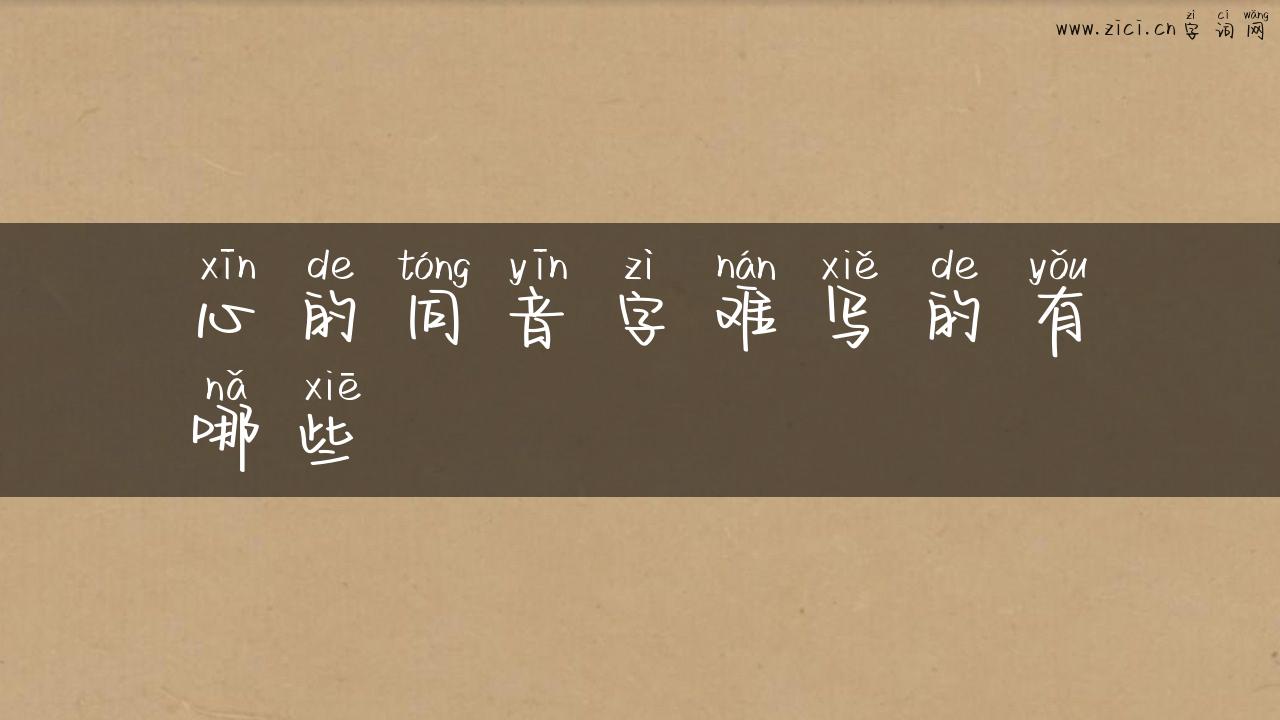 www.zici.cn zì cí wǎng
字词网
xīn de tóng yīn zì nán xiě de yǒu
心的同音字难写的有
nǎ xiē
哪些